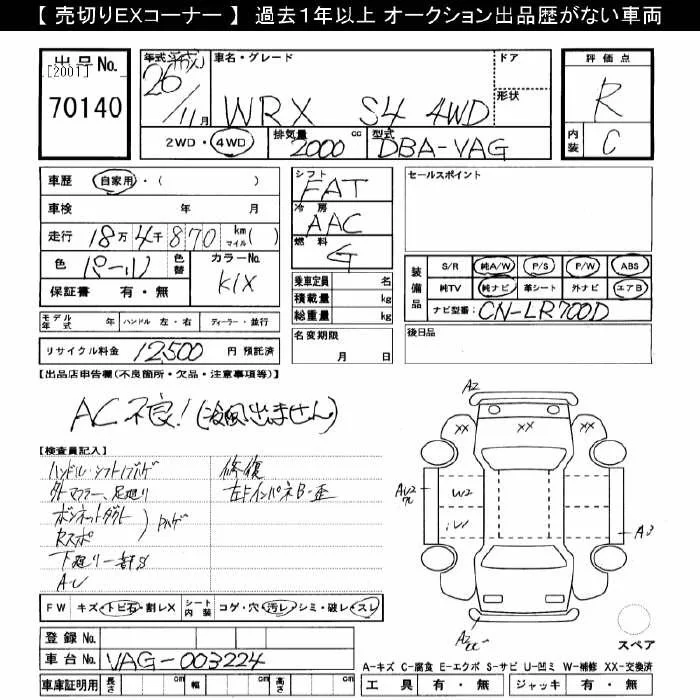 【 売切りEXコーナー 】 過去1年以上 オークション出品歴がない車両
出品No.
[2001]
70140
年式 平成
26/11月
車名・グレード
WRX S4 4WD
ドア
形状
2WD・4WD
排気量
2000 cc
型式
DBA-VAG
評価点
R
内装
C
車歴 自家用・( )
車検 年 月
走行 18万4千870 km マイル( )
色 パール
色替
カラーNo.
K1X
保証書 有・無
シフト
FAT
冷房
AAC
燃料
G
乗車定員 名
積載量 kg
総重量 kg
セールスポイント
装備品
S/R 純A/W P/S P/W ABS
純TV 純ナビ 革シート 外ナビ エアB
ナビ型番: CN-LR700D
モデル年式 年 ハンドル 左・右 ディーラー・並行
リサイクル料金 12,500 円 預託済
名変期限
月 日
後日品
【出品店申告欄(不良箇所・欠品・注意事項等)】
AC不良!(冷風出ません)
【検査員記入】
ハンドル・シフトノブハゲ
外マフラー、足廻り
ボンネットダクト
Rスポ
ハゲ
下廻り一部S
AU
修復
左FインパネB-歪
FW キズ・トビ石・割レX
シート内装 コゲ・穴・汚レ・シミ・破レ・スレ
登録No.
車台No. VAG-003224
車庫証明用 長さ cm 幅 cm 高さ cm
A2
XX XX XX
AU2
W2
A3
A2
スペア
A-キズ C-腐食 E-エクボ S-サビ U-凹ミ W-補修 XX-交換済
工具 有・無 ジャッキ 有・無